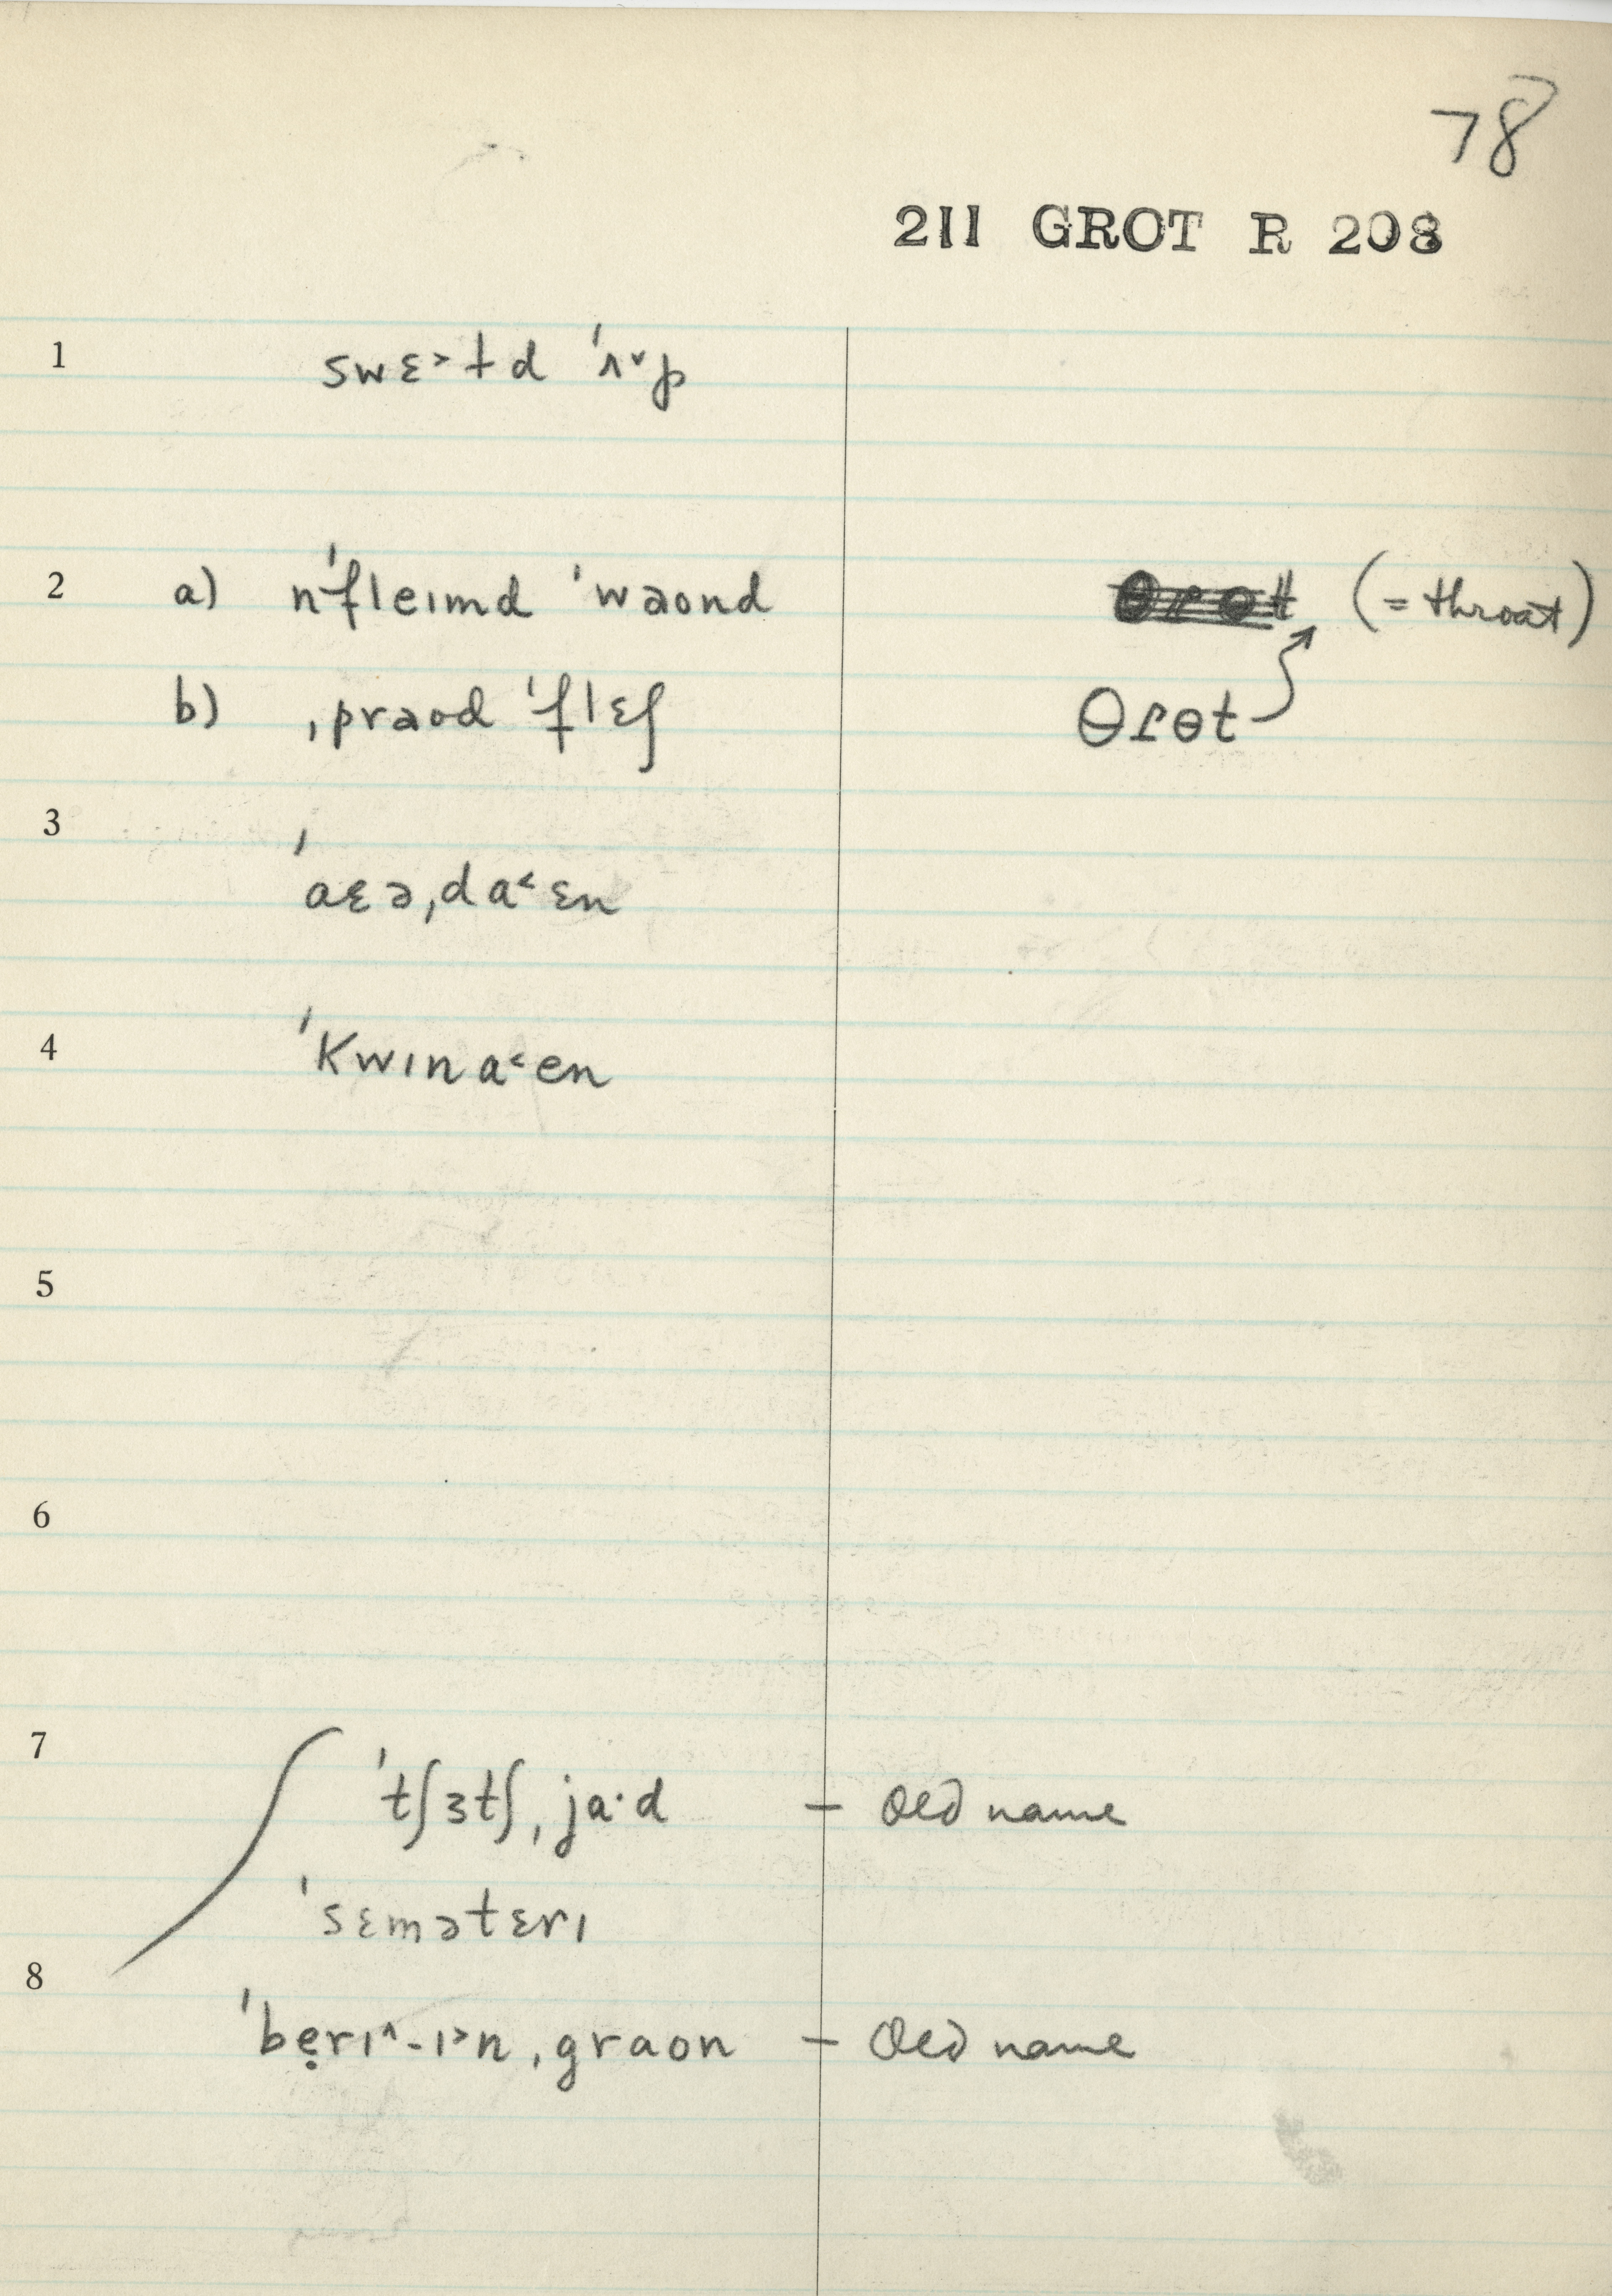 78
211 GROT R 208
1 swɛ˃ɫd ˈʌ˅p
2 a) nˈfleɪmd ˈwəond (= throat)
b) ˌprəod ˈflɛʃ θɾɵt
3 ˈaɛəˌda˂ɛn
4 ˈkwɪna˂en
5
6
7 ˈtʃɜtʃˌja·d — Old name
ˈsɛmətɛrɪ
8 ˈbẹrɪ˄-ɪ˃nˌgraon — Old name